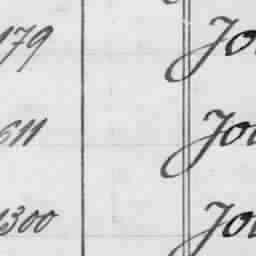 179 Jo
611 Jo
1300 Jo